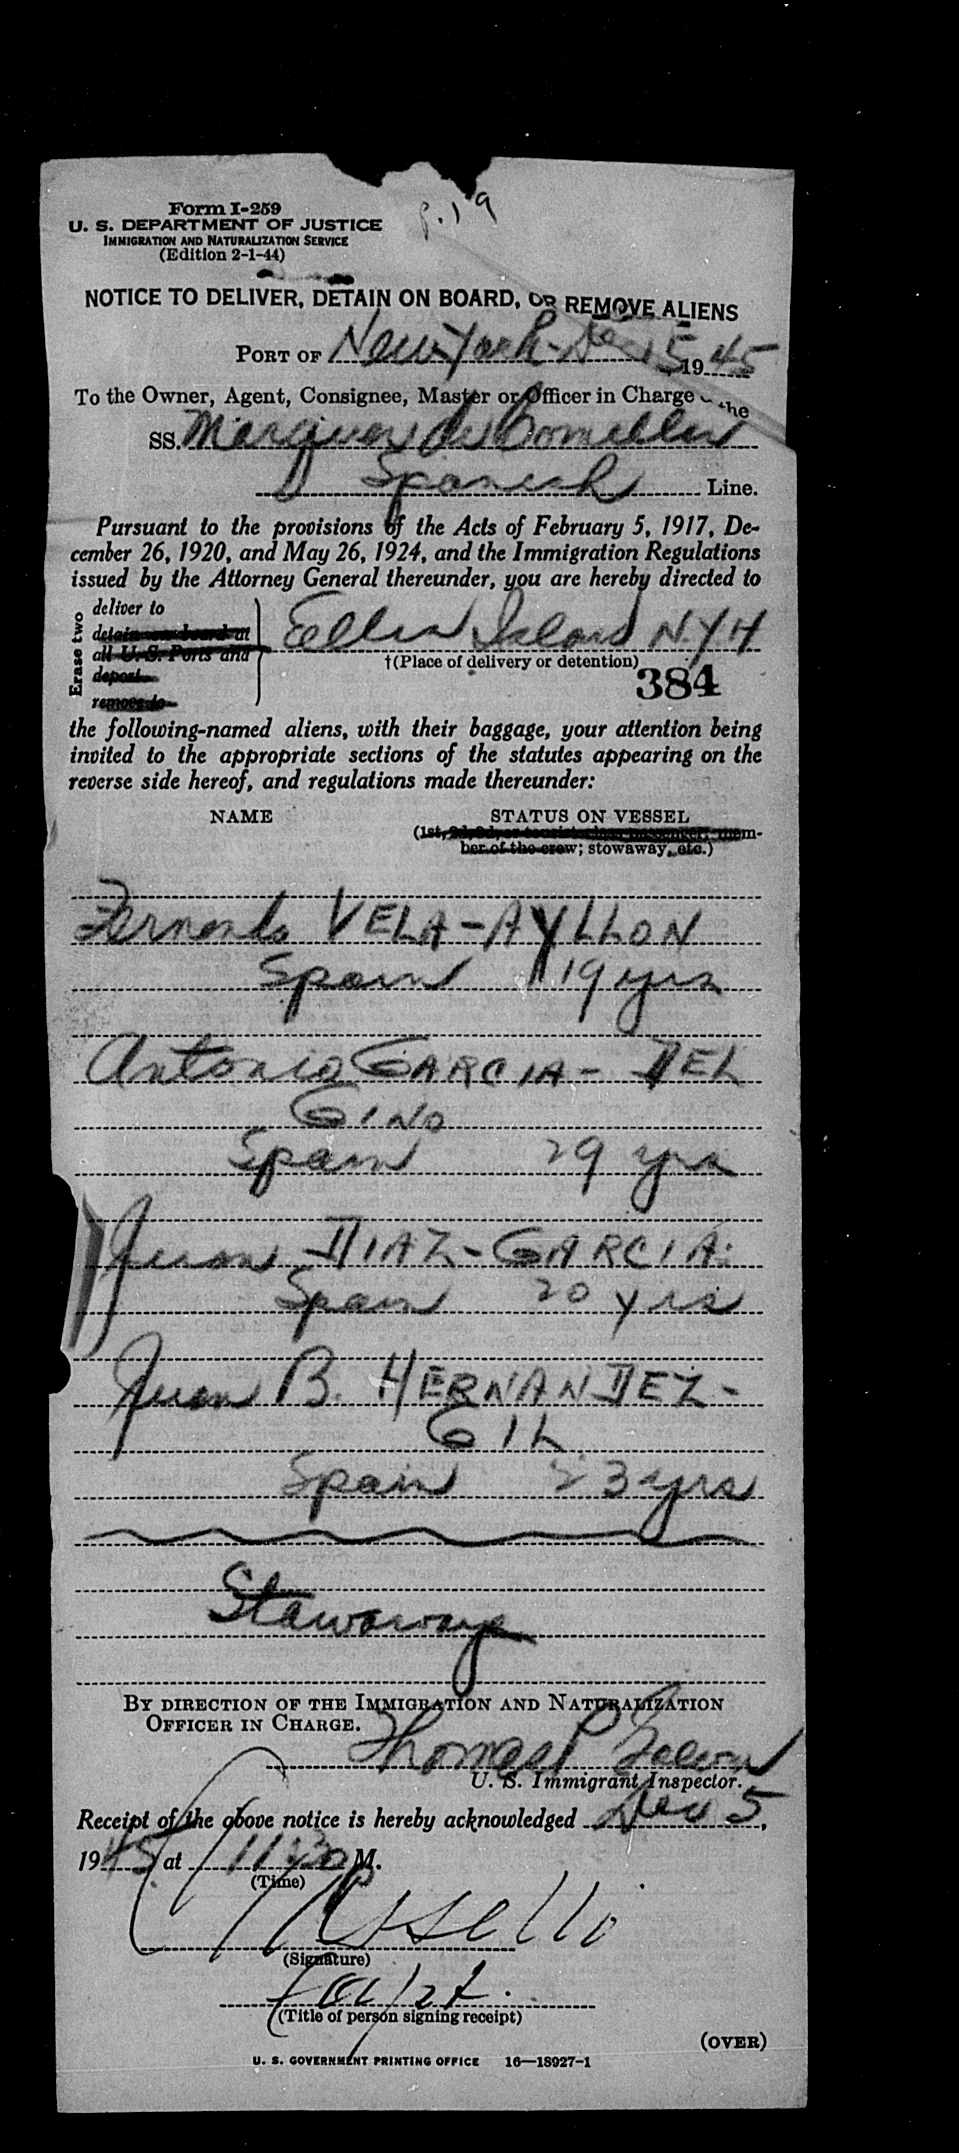 p. 19
Form I-259
U. S. DEPARTMENT OF JUSTICE
IMMIGRATION AND NATURALIZATION SERVICE
(Edition 2-1-44)
NOTICE TO DELIVER, DETAIN ON BOARD, OR REMOVE ALIENS
PORT OF New York - Dec 5 1945
To the Owner, Agent, Consignee, Master or Officer in Charge the
SS. Marques de Comillas
Spanish Line.
Pursuant to the provisions of the Acts of February 5, 1917, De-
cember 26, 1920, and May 26, 1924, and the Immigration Regulations
issued by the Attorney General thereunder, you are hereby directed to
Erase two
deliver to
detain on board at
all U. S. Ports and
deport
remove to
Ellis Island N.Y.H
†(Place of delivery or detention)
384
the following-named aliens, with their baggage, your attention being
invited to the appropriate sections of the statutes appearing on the
reverse side hereof, and regulations made thereunder:
NAME STATUS ON VESSEL
(1st, 2d, 3d, or tourist class passenger; mem-
ber of the crew; stowaway, etc.)
Fernando VELA-AYLLON
Spain 19 yrs
Antonio GARCIA- DEL
GINO
Spain 29 yrs
Juan DIAZ-GARCIA
Spain 20 yrs
Juan B. HERNANDEZ-
GIL
Spain 23 yrs
Stowaways
BY DIRECTION OF THE IMMIGRATION AND NATURALIZATION
OFFICER IN CHARGE.
Thomas P.
U. S. Immigrant Inspector.
Receipt of the above notice is hereby acknowledged Dec 5,
1945 at 11:30 M.
(Time)
(Signature)
(Title of person signing receipt)
(OVER)
U. S. GOVERNMENT PRINTING OFFICE 16—18927-1